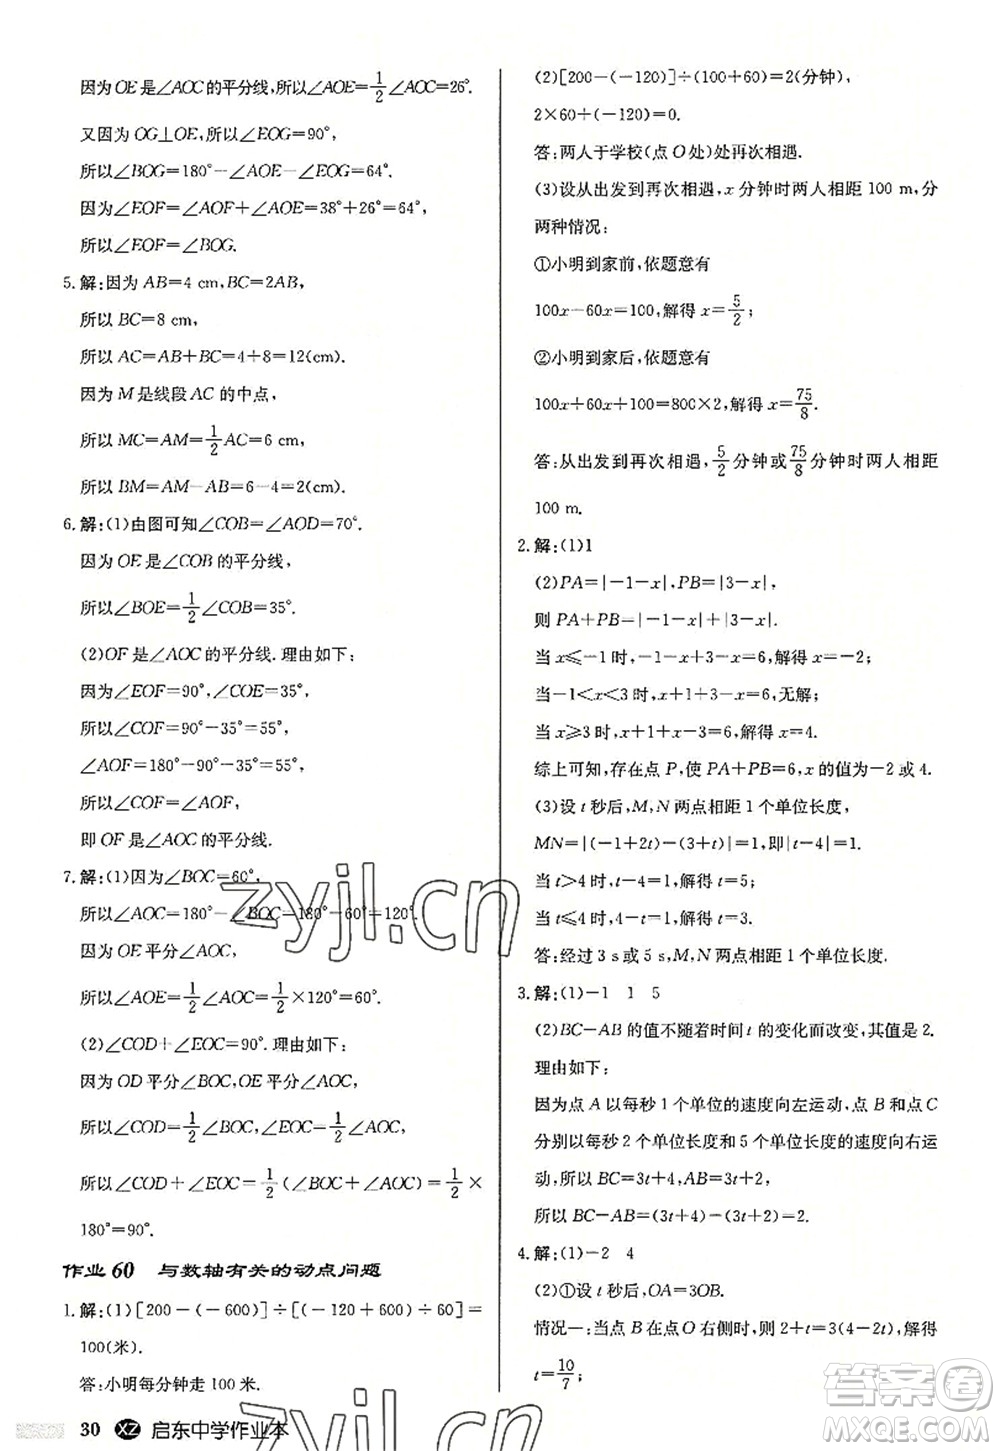 因为OE是∠AOC的平分线,所以∠AOE=1/2∠AOC=26°.
又因为OG⊥OE,所以∠EOG=90°,
所以∠BOG=180°-∠AOE-∠EOG=64°.
因为∠EOF=∠AOF+∠AOE=38°+26°=64°,
所以∠EOF=∠BOG.
5.解:因为AB=4 cm,BC=2AB,
所以BC=8 cm,
所以AC=AB+BC=4+8=12(cm).
因为M是线段AC的中点,
所以MC=AM=1/2AC=6 cm,
所以BM=AM-AB=6-4=2(cm).
6.解:(1)由图可知∠COB=∠AOD=70°.
因为OE是∠COB的平分线,
所以∠BOE=1/2∠COB=35°.
(2)OF是∠AOC的平分线.理由如下:
因为∠EOF=90°,∠COE=35°,
所以∠COF=90°-35°=55°,
∠AOF=180°-90°-35°=55°,
所以∠COF=∠AOF,
即OF是∠AOC的平分线.
7.解:(1)因为∠BOC=60°,
所以∠AOC=180°-∠BOC=180°-60°=120°.
因为OE平分∠AOC,
所以∠AOE=1/2∠AOC=1/2×120°=60°.
(2)∠COD+∠EOC=90°.理由如下:
因为OD平分∠BOC,OE平分∠AOC,
所以∠COD=1/2∠BOC,∠EOC=1/2∠AOC,
所以∠COD+∠EOC=1/2(∠BOC+∠AOC)=1/2×
180°=90°.
作业60 与数轴有关的动点问题
1.解:(1)[200-(-600)]÷[(-120+600)÷60]=
100(米).
答:小明每分钟走100米.
30 XZ 启东中学作业本
(2)[200-(-120)]÷(100+60)=2(分钟),
2×60+(-120)=0.
答:两人于学校(点O处)处再次相遇.
(3)设从出发到再次相遇,x分钟时两人相距100 m,分
两种情况:
①小明到家前,依题意有
100x-60x=100,解得x=5/2;
②小明到家后,依题意有
100x+60x+100=800×2,解得x=75/8.
答:从出发到再次相遇,5/2分钟或75/8分钟时两人相距
100 m.
2.解:(1)1
(2)PA=|-1-x|,PB=|3-x|,
则PA+PB=|-1-x|+|3-x|.
当x≤-1时,-1-x+3-x=6,解得x=-2;
当-1<x<3时,x+1+3-x=6,无解;
当x≥3时,x+1+x-3=6,解得x=4.
综上可知,存在点P,使PA+PB=6,x的值为-2或4.
(3)设t秒后,M,N两点相距1个单位长度,
MN=|(-1+2t)-(3+t)|=|t-4|=1.
当t>4时,t-4=1,解得t=5;
当t≤4时,t-4=-1,解得t=3.
答:经过3 s或5 s,M,N两点相距1个单位长度.
3.解:(1)-1 1 5
(2)BC-AB的值不随着时间t的变化而改变,其值是2.
理由如下:
因为点A以每秒1个单位的速度向左运动,点B和点C
分别以每秒2个单位长度和5个单位长度的速度向右运
动,所以BC=3t+4,AB=3t+2,
所以BC-AB=(3t+4)-(3t+2)=2.
4.解:(1)-2 4
(2)①设t秒后,OA=3OB.
情况一:当点B在点O右侧时,则2+t=3(4-2t),解得
t=10/7;
zyjl.cn
zyjl.cn
答案圈
MXQE.COM